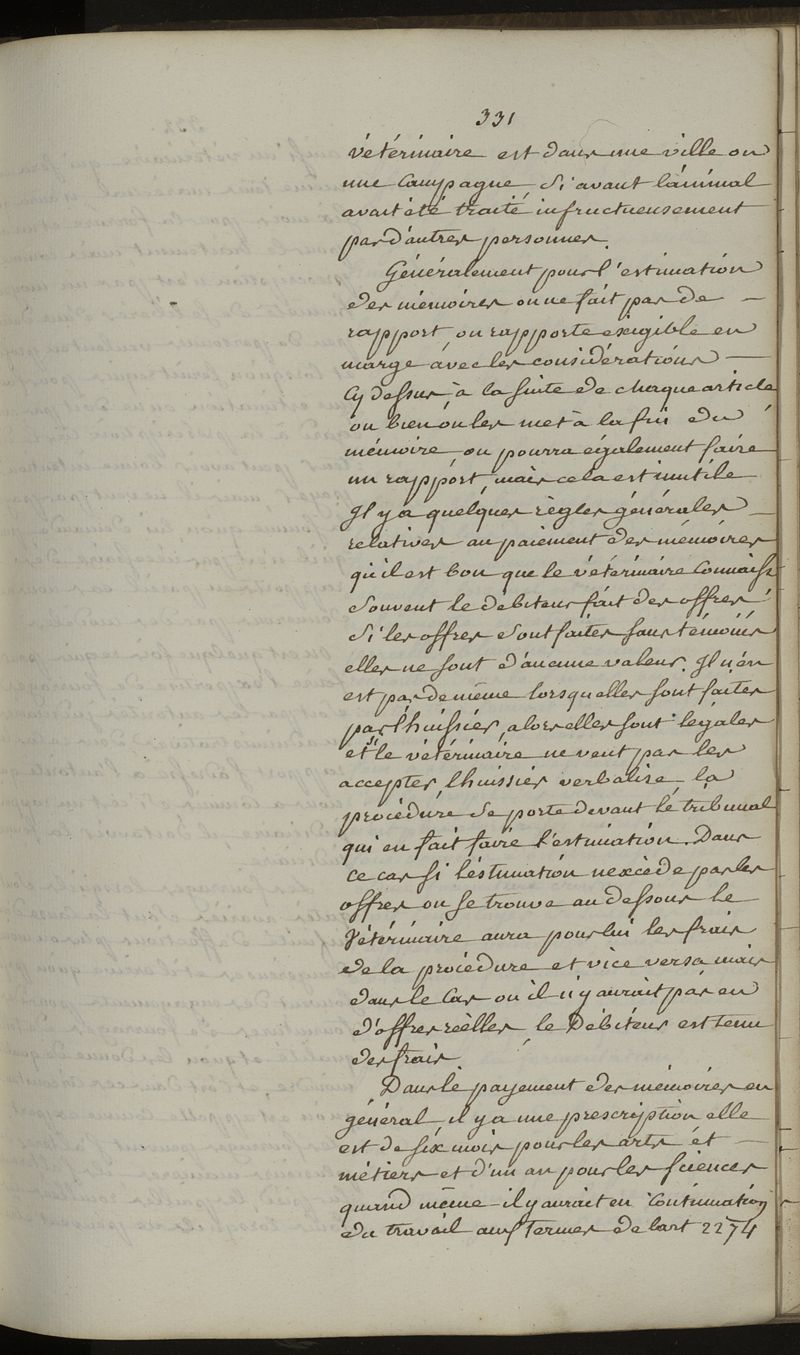 331
vétérinaire est dans une ville ou
une Campagne Si avant l'animal
avait été traité infructueusement
par d'autres personnes.
Généralement pour l'estimation
des mémoires on ne fait pas de —
rapport, on rapporte exigible en
marge avec les considérations —
Cy dessus à la suite de chaque article
ou bien on les met à la fin du
mémoire on pourra également faire
un rapport, mais cela est inutile
Il y a quelques règles générales —
relatives au paiement des mémoires
qu'il est bon que le vétérinaire Connaisse
Souvent le débiteur fait des offres
Si les offres sont faites sans témoins
elles ne sont d'aucune valeur. Il n'en
est pas de même lorsqu'elles sont faites
par l'huissier, alors elles sont légales
et si le vétérinaire ne veut pas les
accepter l'huissier verbalise la
procédure se porte devant le tribunal
qui en fait faire l'estimation. Dans
ce cas si l'éstimation n'excède pas les
offres ou se trouve au dessous le
Vétérinaire aura pour lui les frais
de la procédure et vice versa mais
dans le Cas ou il n'y aurait pas eu
d'offres réelles le Débiteur est tenu
des frais
Dans le payement des mémoires en
général il y a une prescription elle
est de six mois pour les arts et —
métiers et d'un an pour les sciences
quand même il y aurait eu Continuation
du travail aux termes de l'art 2274